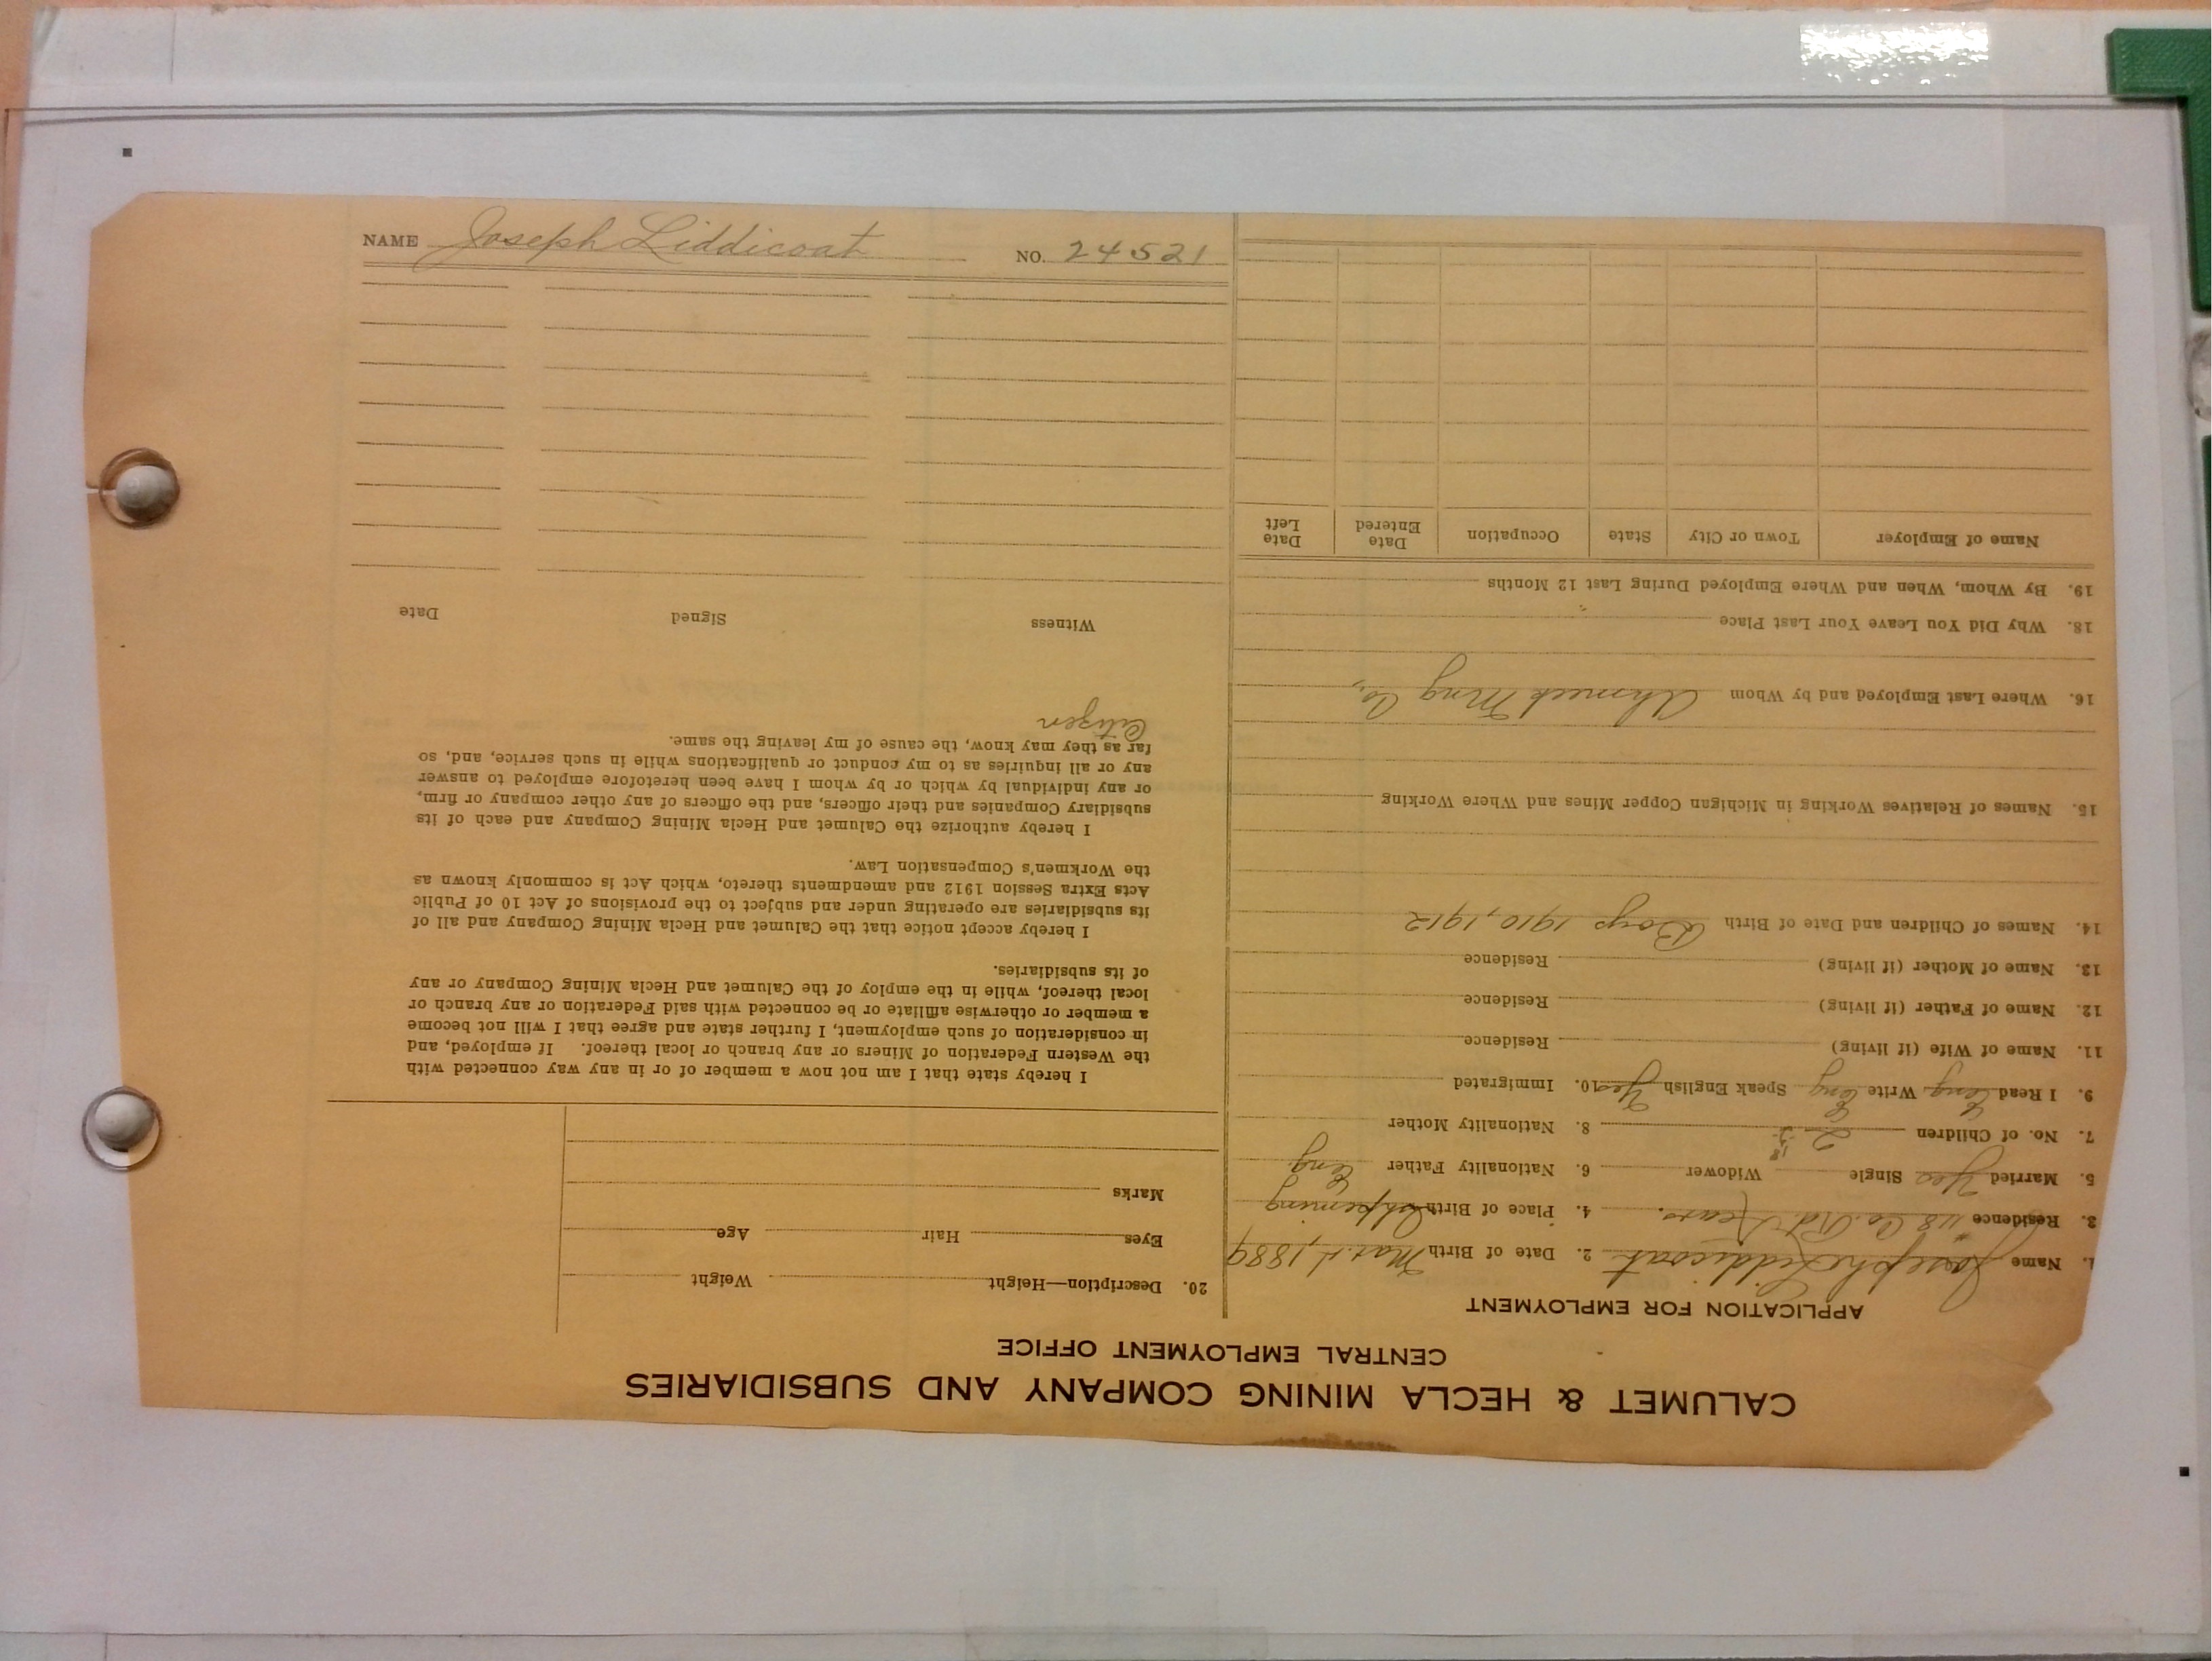 CALUMET & HECLA MINING COMPANY AND SUBSIDIARIES
CENTRAL EMPLOYMENT OFFICE
APPLICATION FOR EMPLOYMENT
1. Name Joseph Liddicoat 2. Date of Birth Mar. 1, 1889
3. Residence 118 Co. Rd Kears. 4. Place of Birth Ishpeming
5. Married Yes Single Widower 6. Nationality Father Eng.
7. No. of Children 2 8. Nationality Mother
9. I Read Eng Write Eng Speak English Yes 10. Immigrated
11. Name of Wife (if living) Residence
12. Name of Father (if living) Residence
13. Name of Mother (if living) Residence
14. Names of Children and Date of Birth Boys 1910, 1912
15. Names of Relatives Working in Michigan Copper Mines and Where Working
16. Where Last Employed and by Whom Ahmeek Mng Co.,
18. Why Did You Leave Your Last Place
19. By Whom, When and Where Employed During Last 12 Months
Name of Employer Town or City State Occupation Date Entered Date Left
20. Description—Height Weight
Eyes Hair Age
Marks
I hereby state that I am not now a member of or in any way connected with
the Western Federation of Miners or any branch or local thereof. If employed, and
in consideration of such employment, I further state and agree that I will not become
a member or otherwise affiliate or be connected with said Federation or any branch or
local thereof, while in the employ of the Calumet and Hecla Mining Company or any
of its subsidiaries.
I hereby accept notice that the Calumet and Hecla Mining Company and all of
its subsidiaries are operating under and subject to the provisions of Act 10 of Public
Acts Extra Session 1912 and amendments thereto, which Act is commonly known as
the Workmen's Compensation Law.
I hereby authorize the Calumet and Hecla Mining Company and each of its
subsidiary Companies and their officers, and the officers of any other company or firm,
or any individual by which or by whom I have been heretofore employed to answer
any or all inquiries as to my conduct or qualifications while in such service, and, so
far as they may know, the cause of my leaving the same.
Citizen
Witness Signed Date
NAME Joseph Liddicoat NO. 24521